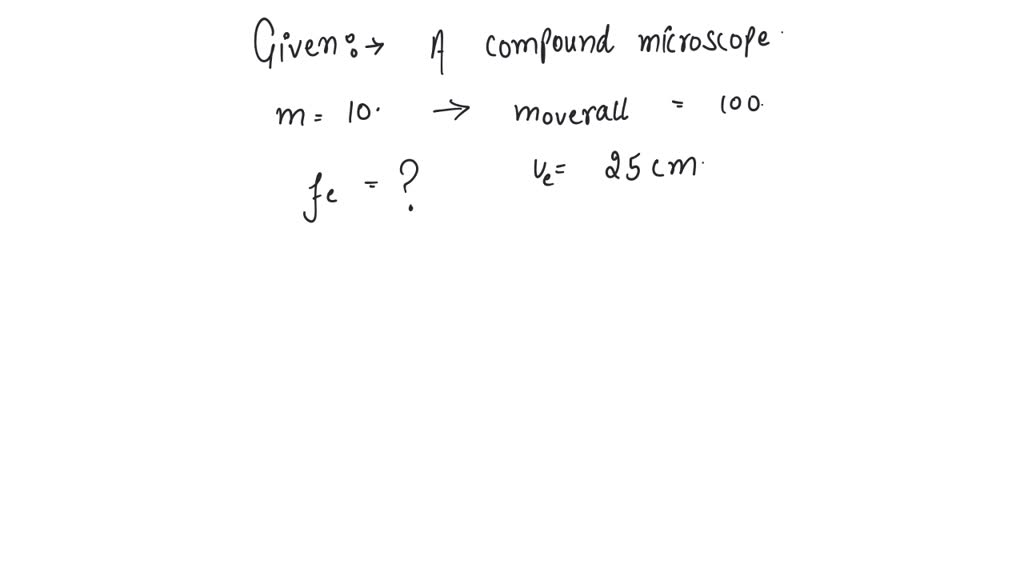 Given:→ A compound microscope.
m = 10. → moverall = 100.
fe = ? ve = 25 cm.